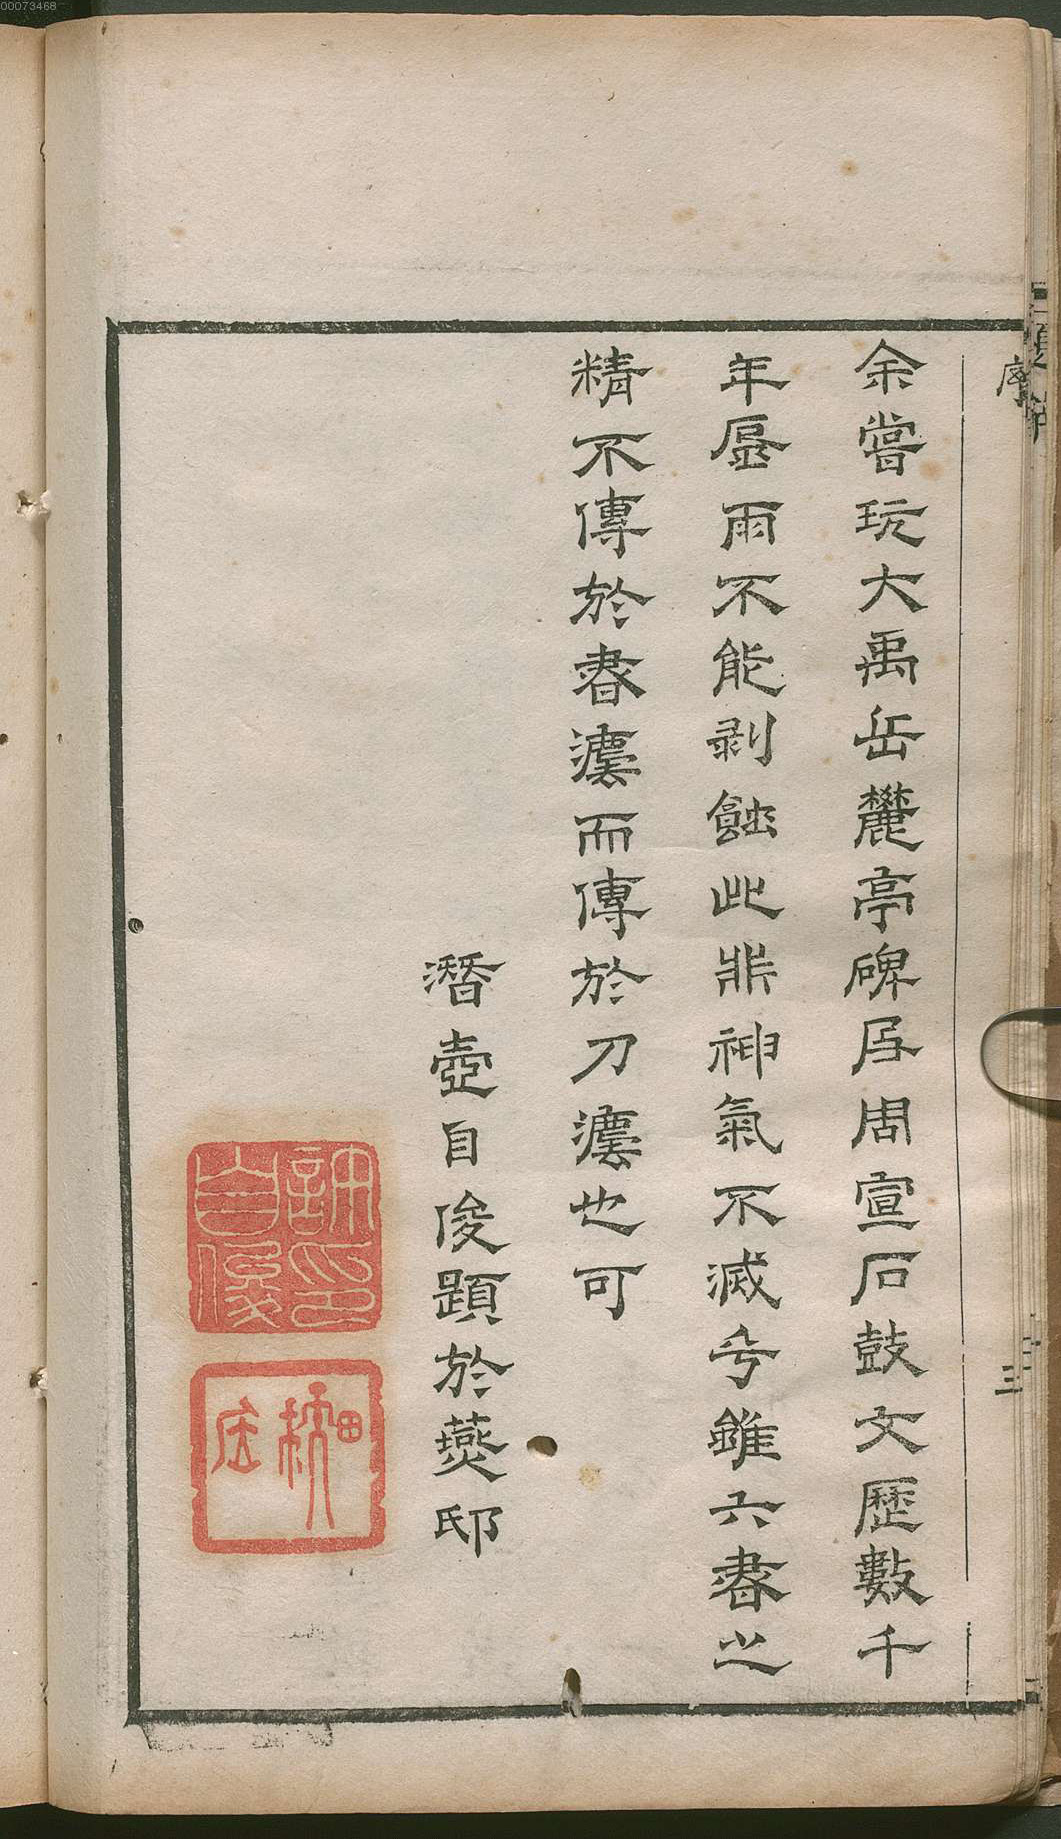 序
三
余嘗玩大禹岳麓亭碑及周宣石鼓文歷數千
年風雨不能剥蝕此非神氣不滅乎雖六書之
精不傳於書灋而傳於刀灋也可
潛壺自俊題於燕邸
許印自俊
00073468